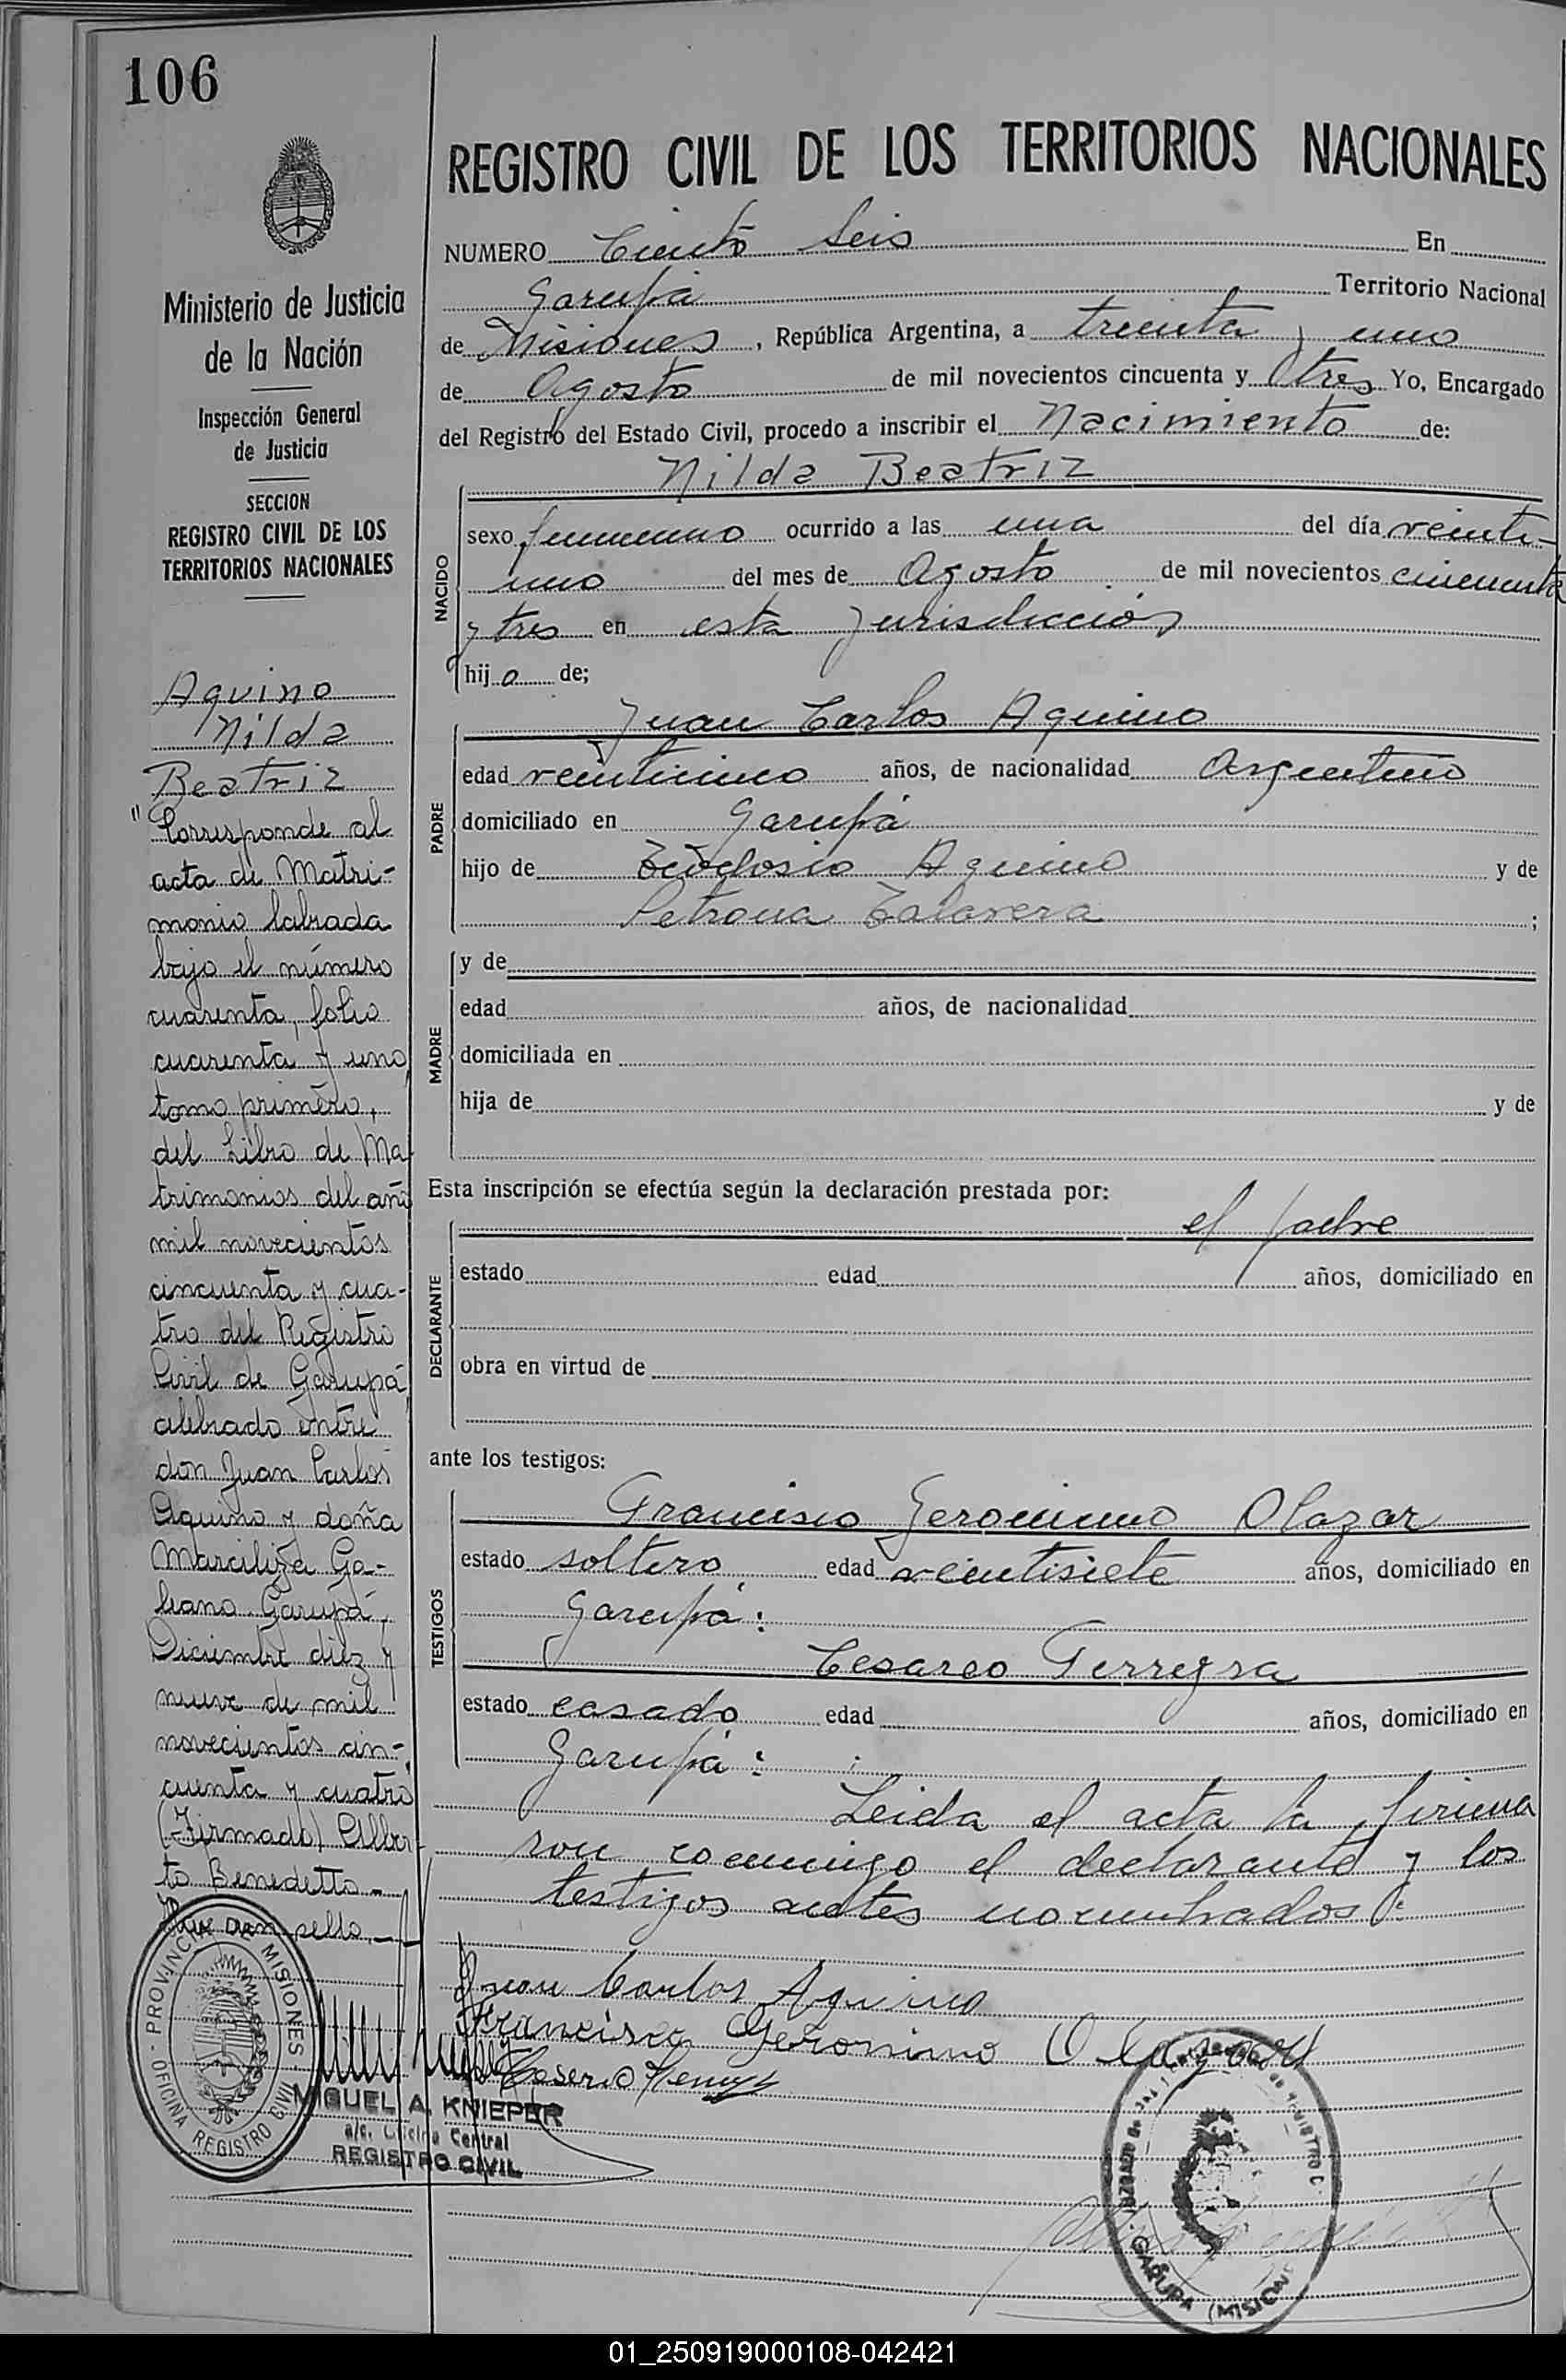 106
Ministerio de Justicia
de la Nación
Inspección General
de Justicia
SECCION
REGISTRO CIVIL DE LOS
TERRITORIOS NACIONALES
Aquino
Nilda
Beatriz
"Corresponde al
acta de Matri-
monio labrada
bajo el número
cuarenta, folio
cuarenta y uno,
tomo primero,
del Libro de Ma-
trimonios del año
mil novecientos
cincuenta y cua-
tro del Registro
Civil de Garupá,
celebrado entre
don Juan Carlos
Aquino y doña
Marciliza Ga-
leano. Garupá,
Diciembre diez y
nueve de mil
novecientos cin-
cuenta y cuatro
(Firmado) Alber-
to Benedetto-
Hay un sello.-
PROVINCIA DE MISIONES
OFICINA REGISTRO CIVIL
MIGUEL A. KNIEPER
a/c. Oficina Central
REGISTRO CIVIL
REGISTRO CIVIL DE LOS TERRITORIOS NACIONALES
NUMERO Ciento Seis En
Garupá Territorio Nacional
de Misiones, República Argentina, a treinta y uno
de Agosto de mil novecientos cincuenta y tres Yo, Encargado
del Registro del Estado Civil, procedo a inscribir el Nacimiento de:
Nilda Beatriz
NACIDO
sexo femenino ocurrido a las una del día veinti-
uno del mes de Agosto de mil novecientos cincuenta
y tres en esta jurisdicción
hija de;
PADRE
Juan Carlos Aquino
edad veinticinco años, de nacionalidad Argentino
domiciliado en Garupá
hijo de Teodosio Aquino y de
Petrona Talavera ;
MADRE
y de
edad años, de nacionalidad
domiciliada en
hija de y de
Esta inscripción se efectúa según la declaración prestada por:
DECLARANTE
el padre
estado edad años, domiciliado en
obra en virtud de
ante los testigos:
TESTIGOS
Francisco Geronimo Olazar
estado soltero edad veintisiete años, domiciliado en
Garupá:
Cesareo Ferreyra
estado casado edad años, domiciliado en
Garupá:
Leida el acta la firma
ron conmigo el declarante y los
testigos antes nombrados:
Juan Carlos Aquino
Francisco Geronimo Olazar
GARUPA (MISIONES
01_250919000108-042421